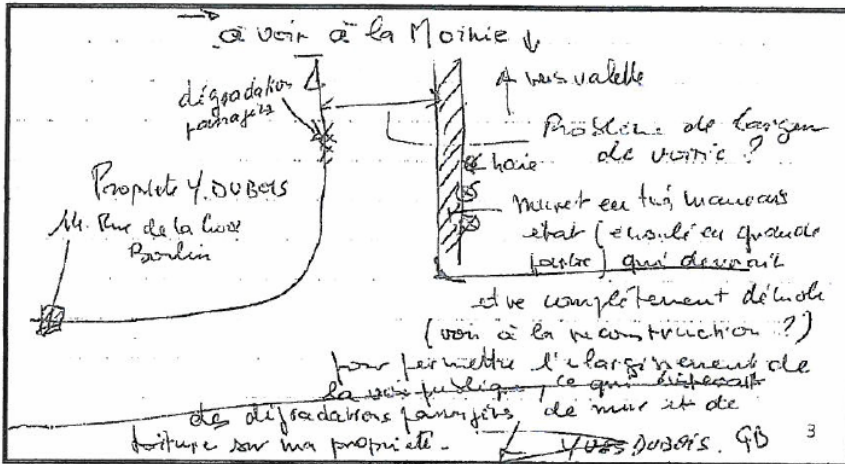 à voir à la Mairie
vers valette
dégradation
passagers
Problème de largeur
de voirie ?
haie
Propriété Y. DUBOIS
14. Rue de la Croix
muret en très mauvais
état (écroulé en grande
partie) qui devrait
être complètement démoli
(voir à la reconstruction ?)
pour permettre l'élargissement de
la voie publique, ce qui éviterait
des dégradations passagers, de mur et de
toiture sur ma propriété.
YVES DUBOIS. GB
3